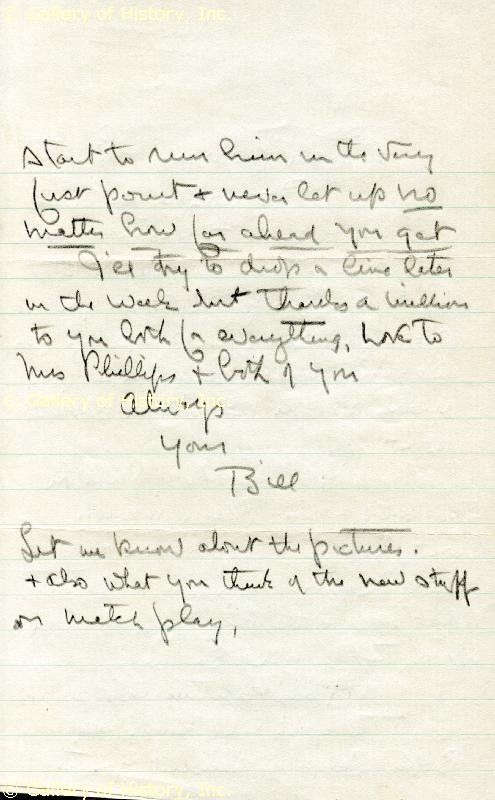 © Gallery of History, Inc.
start to run him in the very
first point + never let up no
matter how far ahead you get
I'll try to drop a line later
in the week but thanks a million
to you both for everything, Love to
Mrs Phillips + both of you
Always
Yours
Bill
© Gallery of History, Inc.
Let me know about the pictures.
+ also what you think of the new stuff
on match play.
© Gallery of History, Inc.